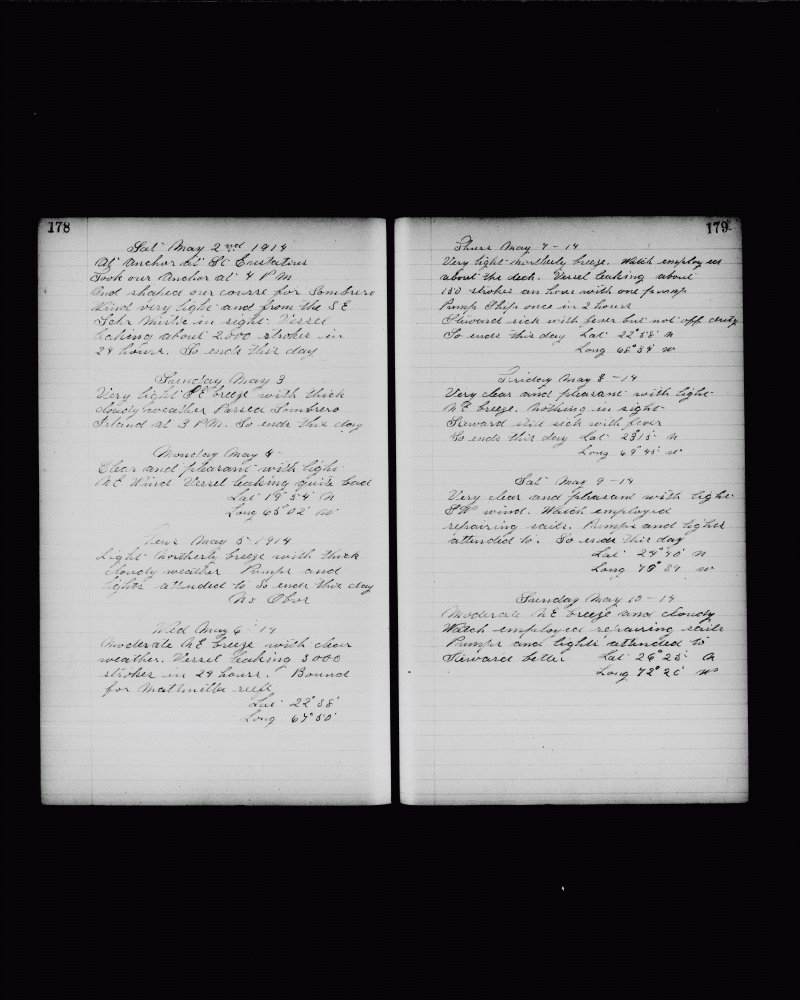 178
Sat May 2nd 1914
At Anchor at St Eustatius
Took our Anchor at 4 P M
And shaped our course for Sombrero
Wind very light and from the S E
Schr Mistic in sight. Vessel
leaking about 2,800 strokes in
24 hours. So ends this day
Sunday May 3
Very light S E breeze with thick
cloudy weather Passed Sombrero
Island at 3 P.M. So ends this day
Monday May 4
Clear and pleasant with light
N E Wind Vessel leaking quite bad
Lat 19° 54' N
Long 65° 02' W
Tues May 5 - 1914
Light Northerly breeze with thick
Cloudy weather Pumps and
lights attended to So ends this day
No Obsr
Wed May 6 - 14
Moderate N E breeze with clear
weather. Vessel leaking 3000
strokes in 24 hours. Bound
for reefs
Lat 22° 38'
Long 67° 50'
179
Thurs May 7 - 14
Very light northerly breeze. Watch employed
about the deck. Vessel leaking about
150 strokes an hour with one pump
Pump Ship once in 2 hours
Steward sick with fever but not off duty
So ends this day Lat 22° 58' N
Long 68° 34' W
Friday May 8 - 14
Very clear and pleasant with light
N E breeze. Nothing in sight
Steward still sick with fever
So ends this day Lat 23° 15' N
Long 69° 45' W
Sat May 9 - 14
Very clear and pleasant with light
S W wind. Watch employed
repairing sails. Pumps and lights
attended to. So ends this day
Lat 24° 40' N
Long 70° 39' W
Sunday May 10 - 14
Moderate N E breeze and cloudy
Watch employed repairing sails
Pumps and lights attended to
Steward better Lat 26° 25' N
Long 72° 20' W